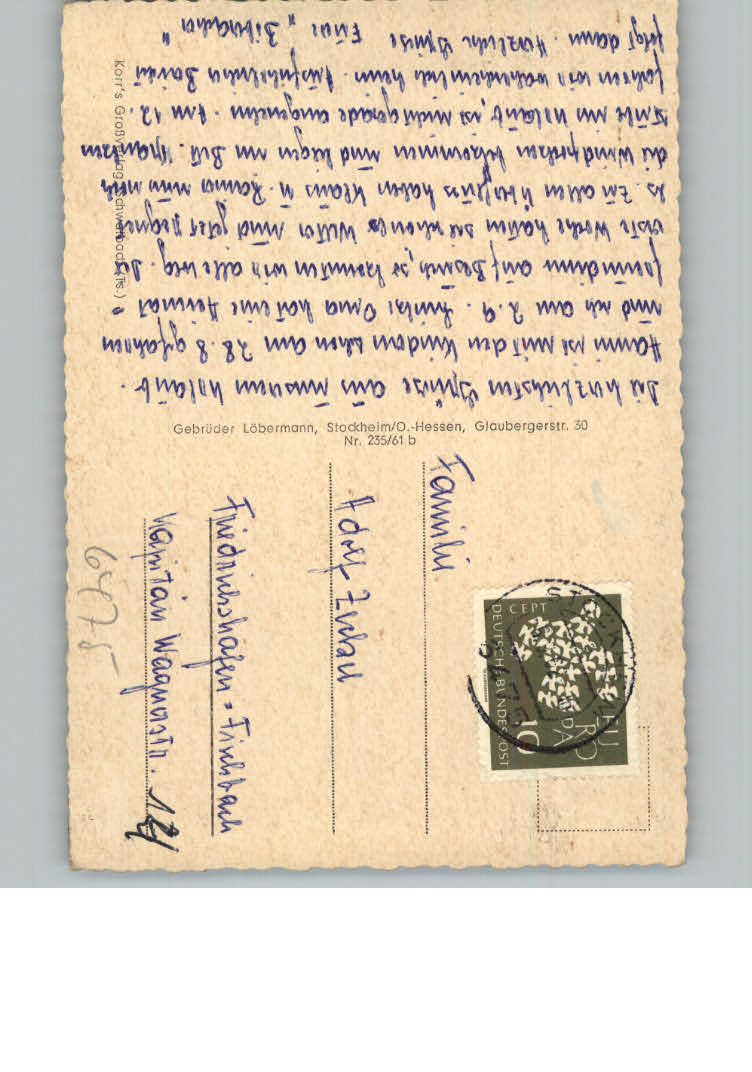 Die herzlichsten Grüße aus unserem Urlaub.
Hanni ist mit den Kindern schon am 28.8 gefahren
und ich am 2.9. Lunks Oma hat eine Heimat
freundinn auf Besuch, so konnten wir alle weg. Die
erste Woche hatten sie schönes Wetter und jetzt regnet
es. Zu allem Überfluss haben Klaus u. Hanna nun noch
die Windpocken bekommen und liegen im Bett. Kranken
Stube im Urlaub, ist nicht gerade angenehm. Am 12.
fahren wir wahrscheinlich heim. Ausführlicher Bericht
folgt dann. Herzliche Grüße Eure "Biberacher"
Korr's Großverlag Schwalbach (Ts.)
Gebrüder Löbermann, Stockheim/O.-Hessen, Glaubergerstr. 30
Nr. 235/61 b
Familie
Adolf
Friedrichshafen-Fischbach
Kapitän Wagnerstr. 12
6475
CEPT
DEUTSCHE BUNDESPOST
EUROPA
10